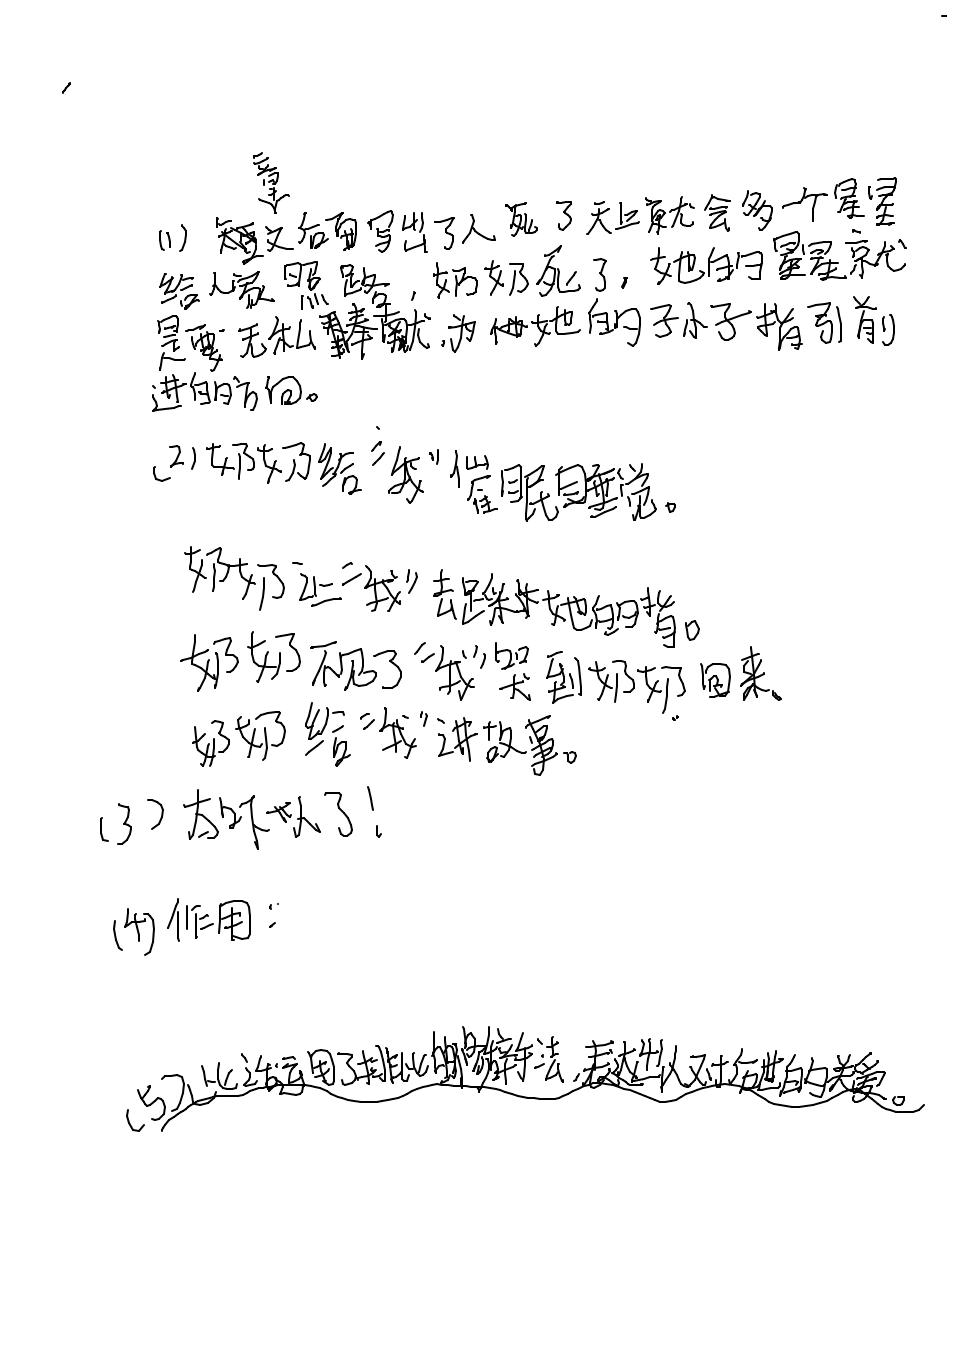 章
(1) 短文后面写出了人死了天上就会多一个星星
给人家照路，奶奶死了，她的星星就
是要无私奉献，为她的子小子指引前
进的方向。
(2)奶奶给“我”催眠睡觉。
奶奶让“我”去踩她的背。
奶奶不见了“我”哭到奶奶回来、
奶奶给“我”讲故事。
(3) 太吓人了！
(4)作用：
(5)此话运用了排比的修辞手法，表达出人对后世的关爱。